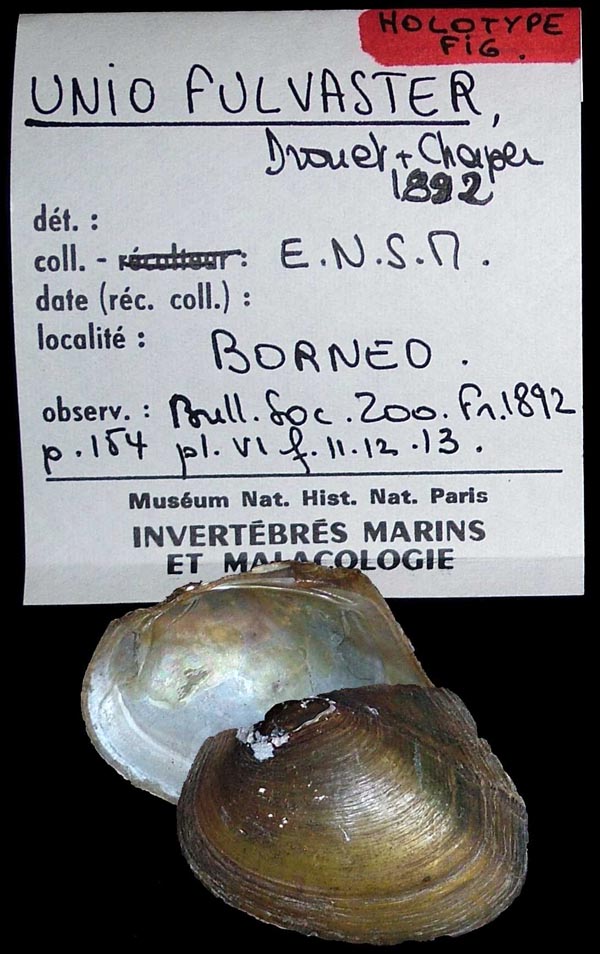 HOLOTYPE
FIG.
UNIO FULVASTER,
Drouet + Chaper
1892
dét. :
coll. - récolteur : E.N.S.M.
date (réc. coll.) :
localité : BORNEO.
observ. : Bull. Soc. Zoo. Fr. 1892
p. 154 pl. VI f. 11. 12. 13.
Muséum Nat. Hist. Nat. Paris
INVERTÉBRÉS MARINS
ET MALACOLOGIE